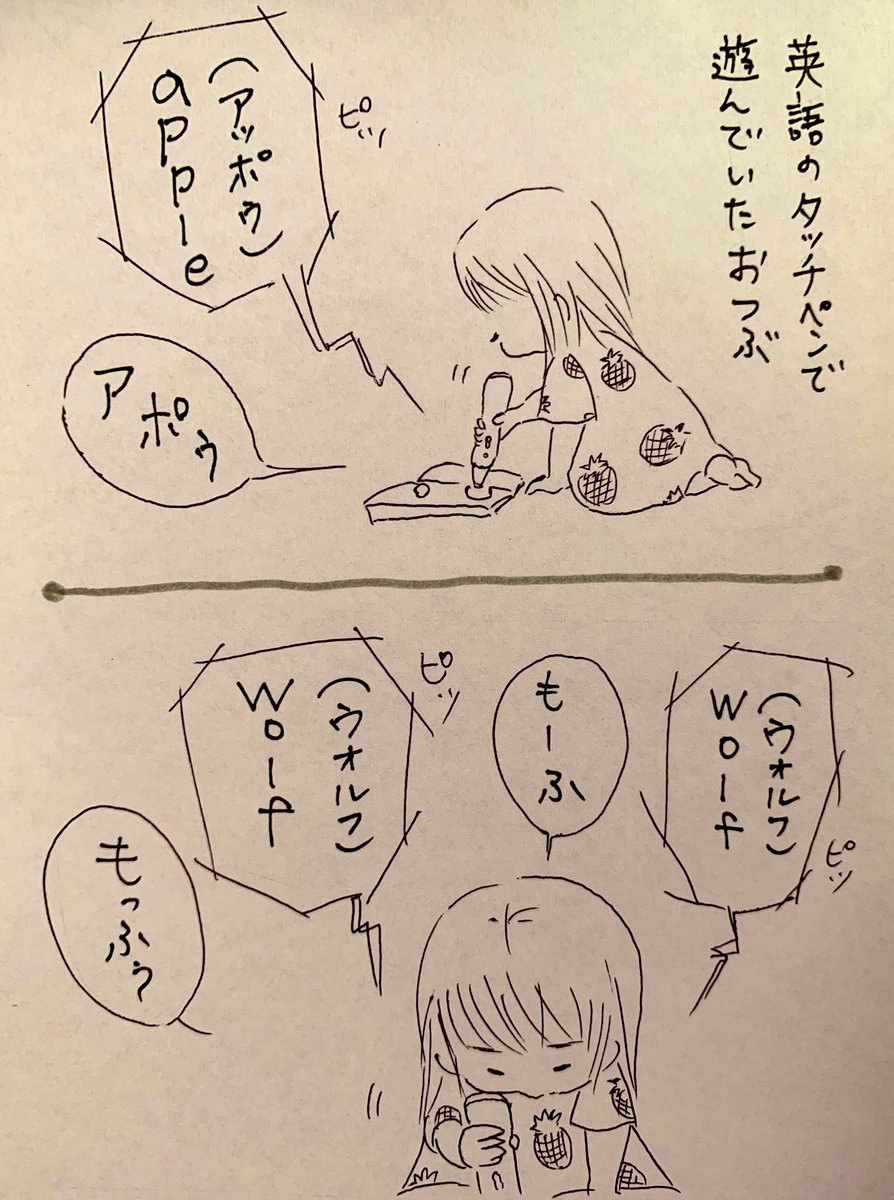 英語のタッチペンで
遊んでいたおつぶ
ピッ
(アッポゥ)
apple
アポゥ
(ウォルフ)
wolf
ピッ
もーふ
ピッ
(ウォルフ)
wolf
もっふぅ